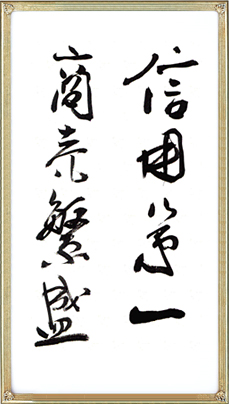 信用第一
商売繁盛